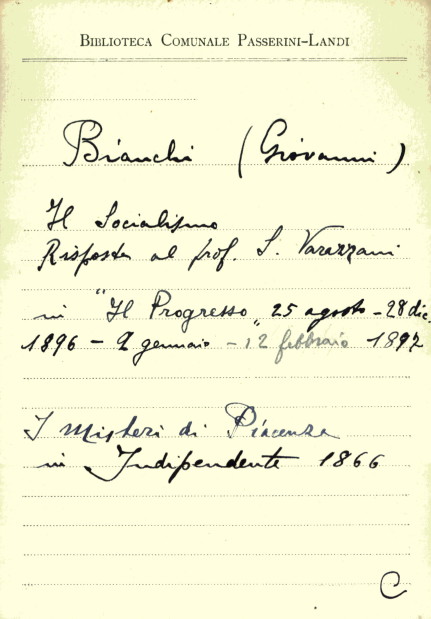 BIBLIOTECA COMUNALE PASSERINI-LANDI
Bianchi (Giovanni)
Il Socialismo
Risposta al prof. S. Varazzani
in "Il Progresso" 25 agosto - 28 dic.
1896 - 2 gennaio - 12 febbraio 1897
I misteri di Piacenza
in Indipendente 1866
C